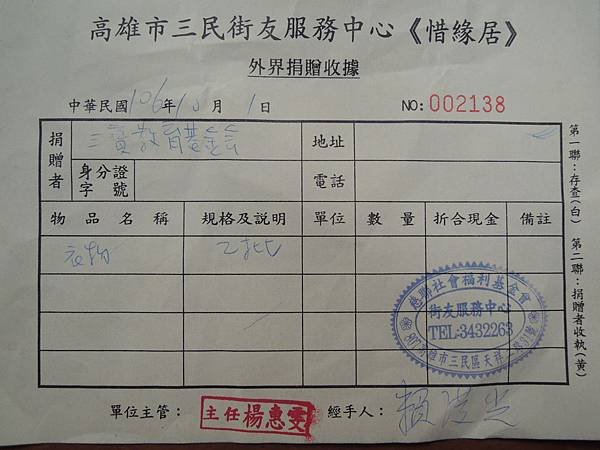 高雄市三民街友服務中心《惜緣居》
外界捐贈收據
中華民國106年10月1日 NO:002138
捐贈者 三寶教育基金會 地址
身分證字號 電話
物品名稱 規格及說明 單位 數量 折合現金 備註
衣物 乙批
慈聯社會福利基金會
街友服務中心
TEL:3432263
高雄市三民區天祥二路
單位主管: 主任楊惠雯 經手人:
第一聯:存查(白) 第二聯:捐贈者收執(黃)